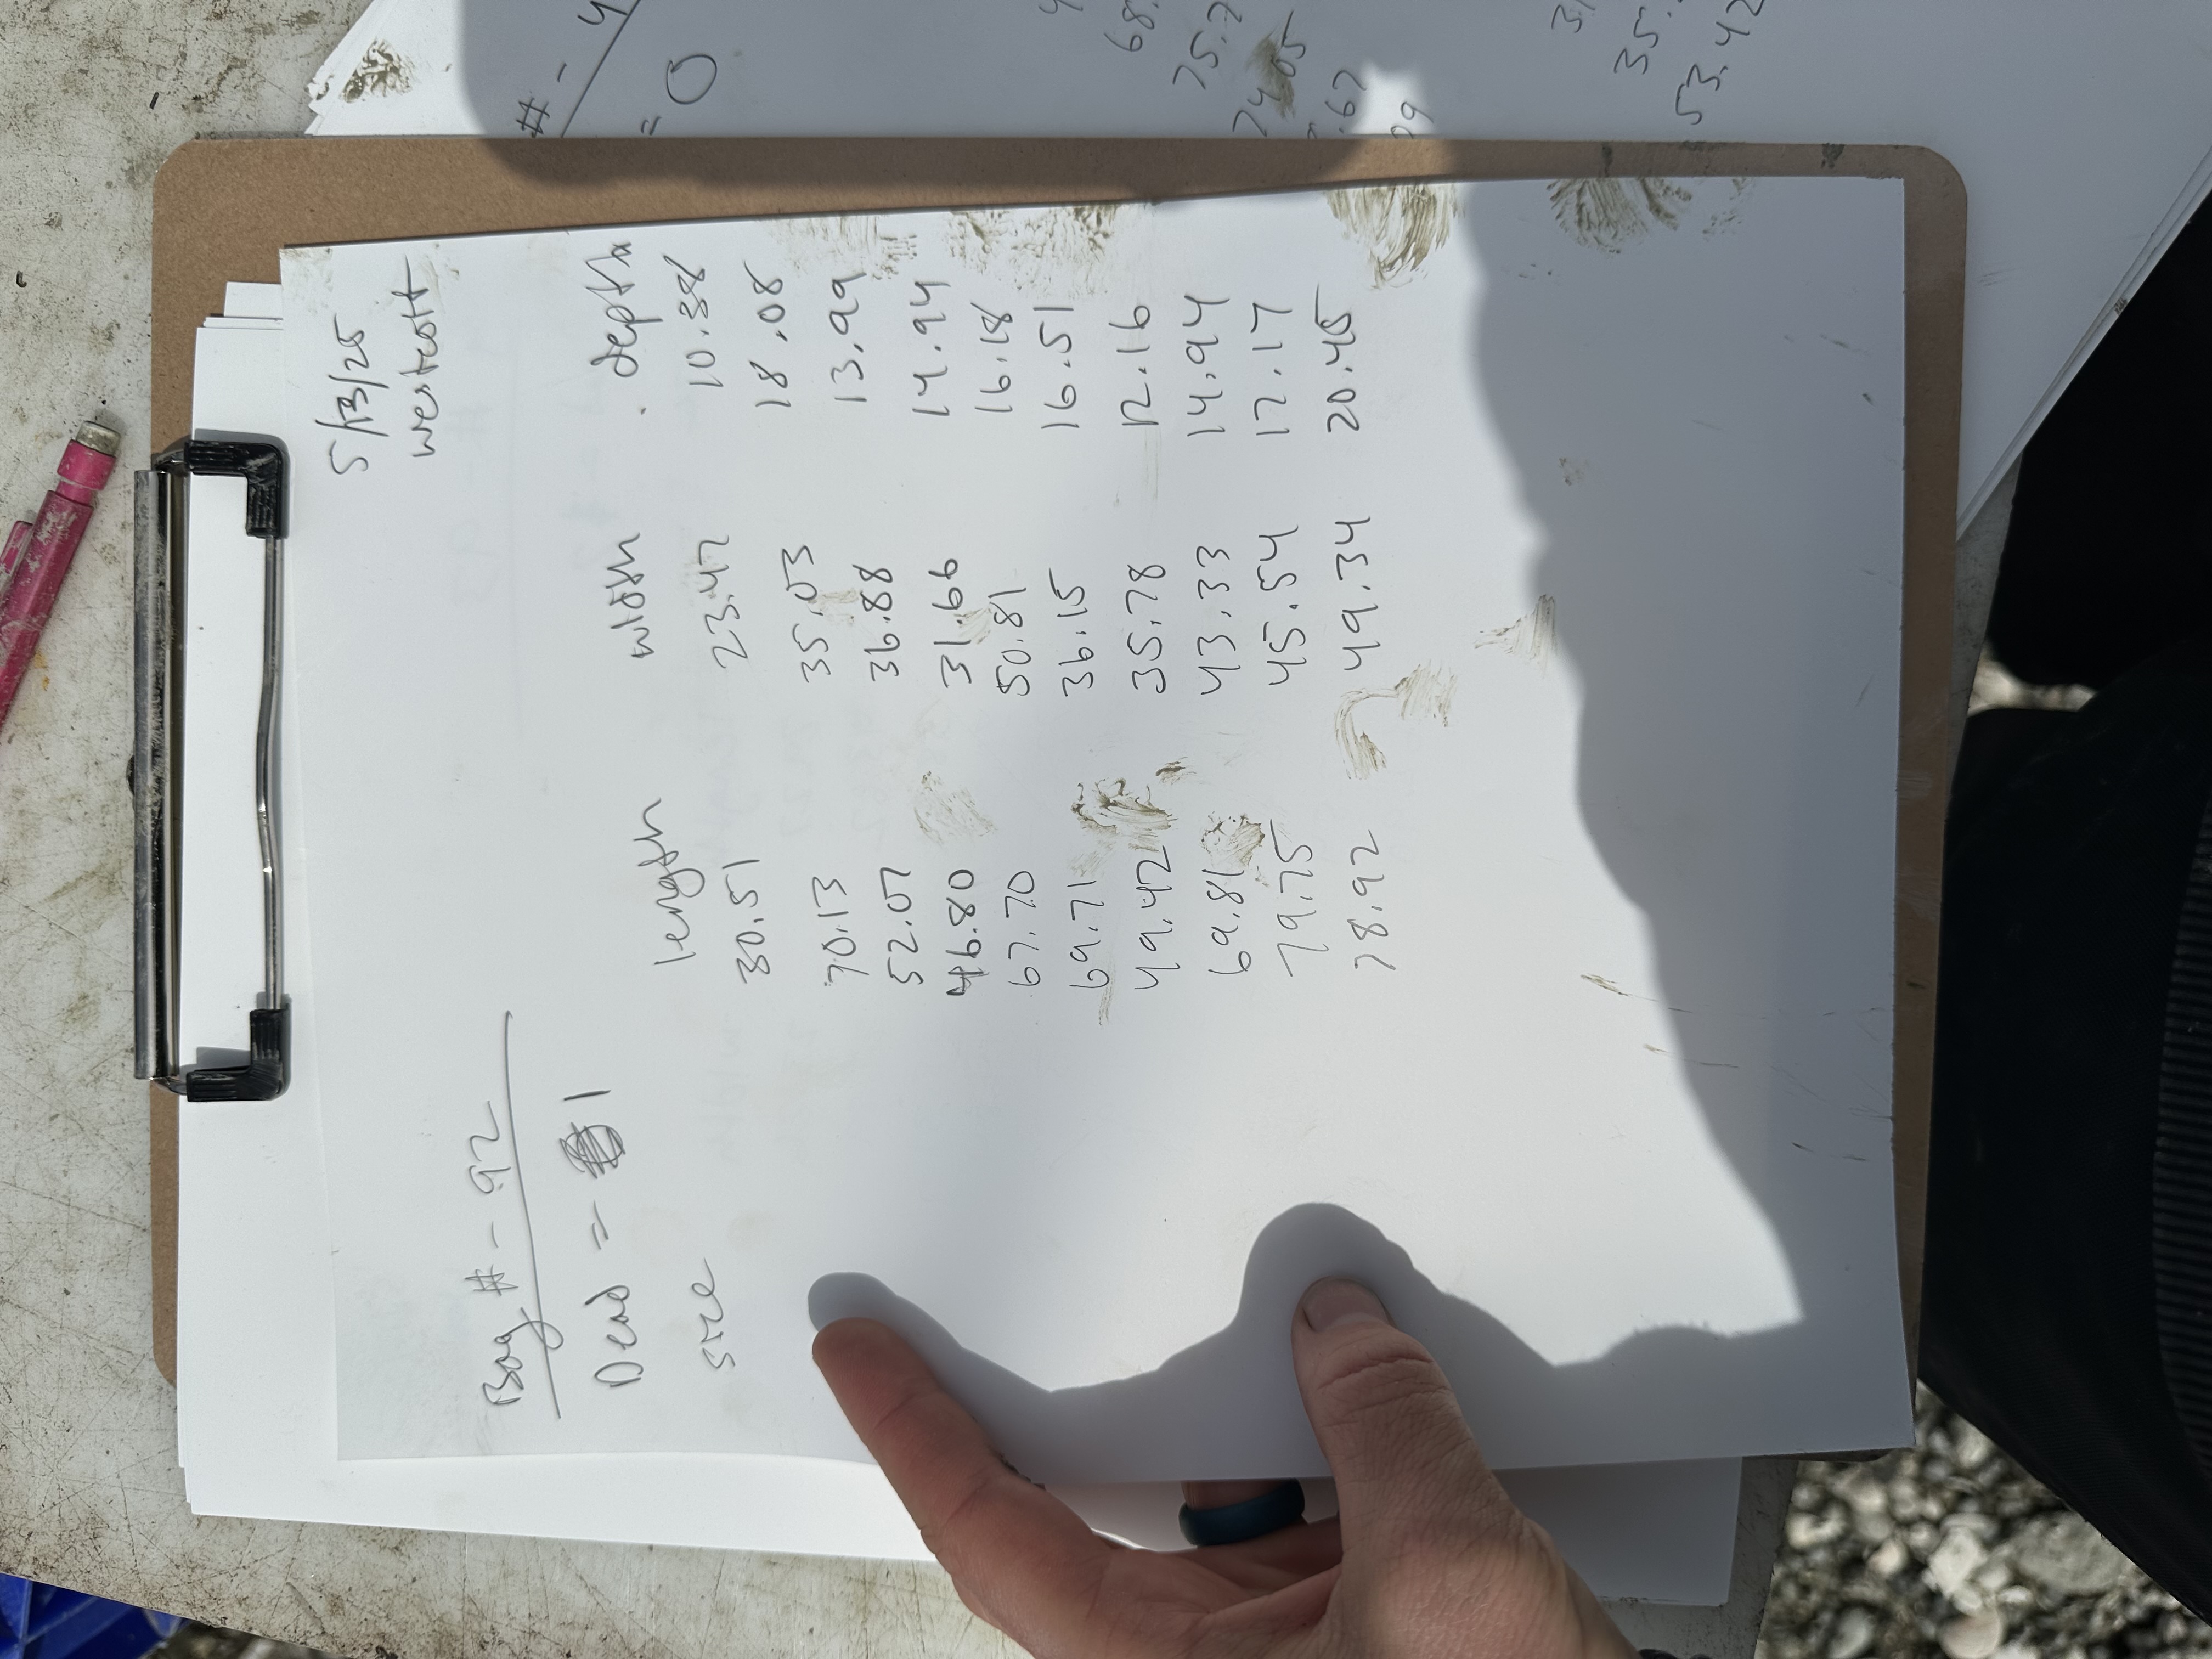 5/13/25
Westcott
Bag # - 92
Dead = 1
size length width depth
30.51 23.47 10.38
70.13 35.03 18.08
52.07 36.88 13.99
46.80 31.66 14.94
67.70 50.81 16.18
69.71 36.15 16.51
49.42 35.78 12.16
69.81 43.33 14.94
79.75 45.54 17.17
78.92 49.34 20.45
# - 4
= 0
68.
75.7
74.05
.67
09
31
35.
53.42